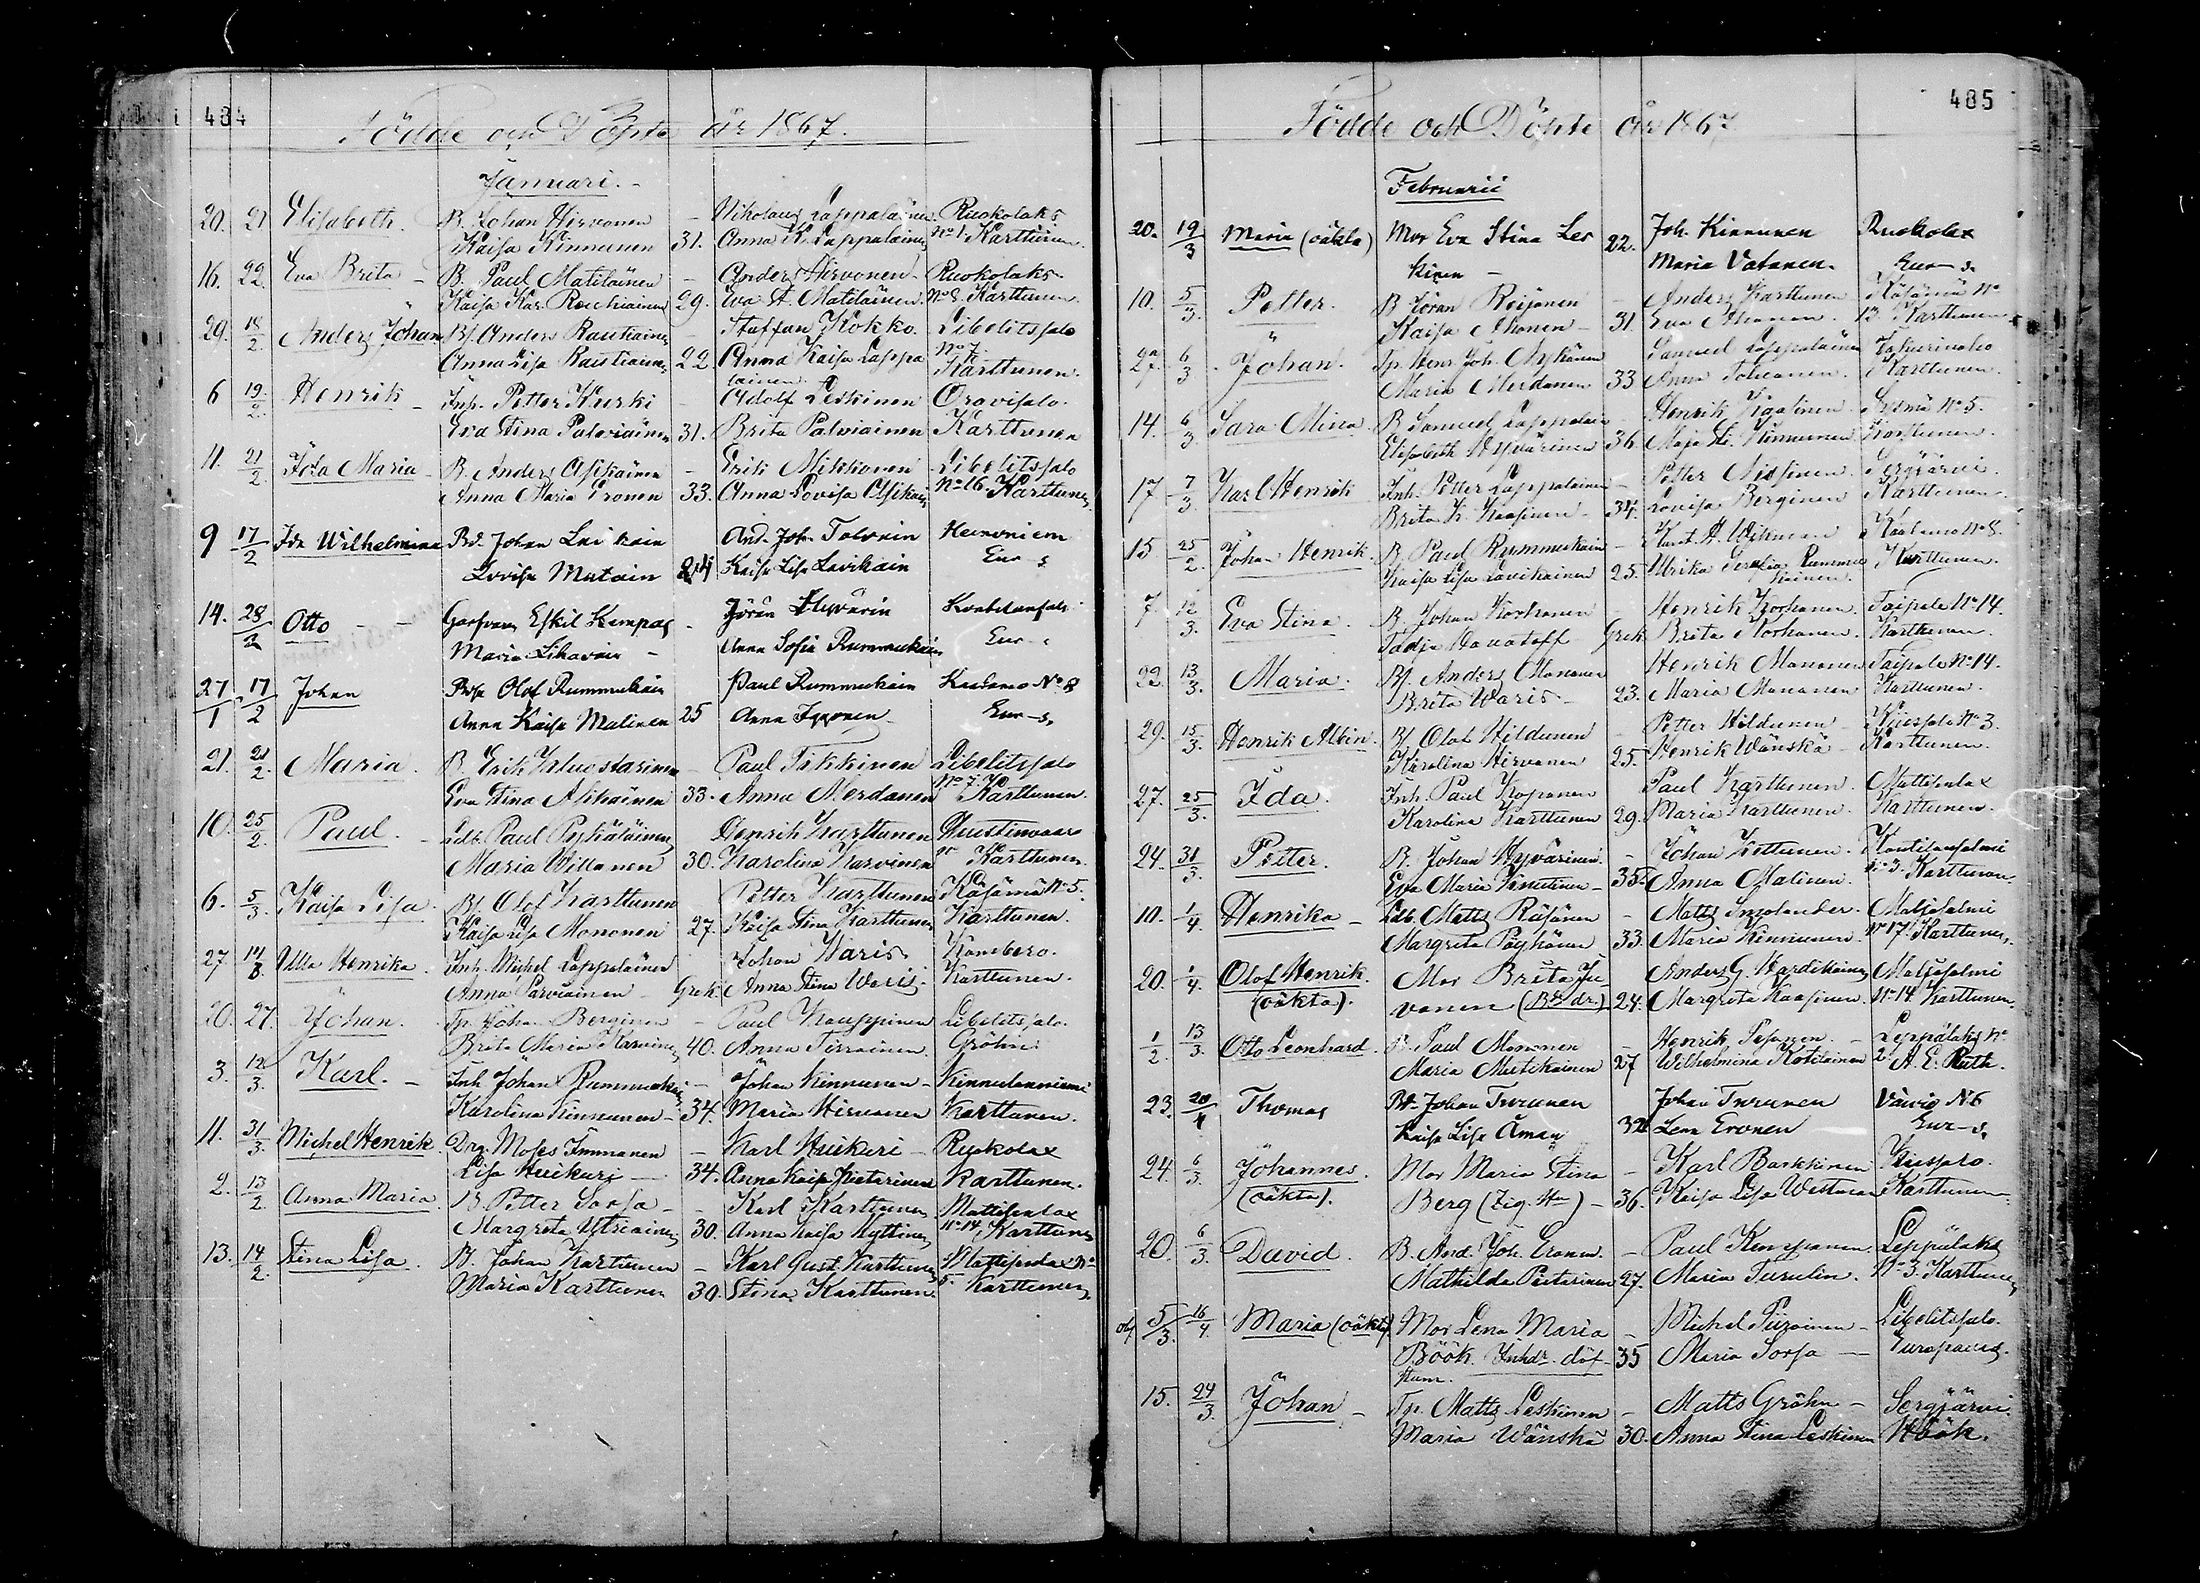 484
Födde och Döpte år 1867.
Januari.
20. 21 Elisabeth. B. Johan Hirvonen - Nikolaus Lappalainen Ruokolaks
Kaisa Kinnunen 31. Anna K. Lappalainen No 1. Karttunen.
16. 22. Eva Brita - B. Paul Matilainen - Anders Hirvonen - Ruokolaks.
Kaisa Kar. Rautiainen 29. Eva St. Matilainen. No 8. Karttunen.
29. 18/2 Anders Johan Bf. Anders Rautiainen Staffan Kokko. Libelitssalo
Anna Lisa Rautiainen 22 Anna Kaisa Lappa No 7
lainen. Karttunen.
6 19/2. Henrik - Inh. Petter Kurki - Adolf Leskinen Oravisalo.
Eva Stina Palviainen 31. Brita Palviainen Karttunen
11. 21/2 Ida Maria - B. Anders Asikainen - Erik Mikkonen Libelitssalo
Anna Maria Eronen 33. Anna Lovisa Asikainen No 16 Karttunen
9 17/2 Ida Wilhelmina Bd. Johan Laikain And. Joh. Tolvain
Lovisa Mutain Kaisa Lisa Lavikain Eur-s
14. 28/2 Otto - - Eskil Kempas - Jöran Hyvärin
Maria Likavain - Anna Sofia Rummukain Eur-s
27/1 17/2 Johan Olof Rummukain Paul Rummukain Kaalamo No 8
Anna Kaisa Malinen 25 Anna Ikonen Eur-s.
21. 21/2. Maria. B. Erik Kluostarinen - Paul Tikkinen Libelitssalo
Eva Stina Asikainen 33. Anna Merdanen No 7. Karttunen.
10. 25/2. Paul. - Ldb. Paul Pyhäläinen Henrik Karttunen Huestinvaara
Maria Willanen 30. Karolina Karvinen Karttunen.
6. 5/3. Kaisa Lisa. Bf. Olof Karttunen Petter Karttunen Käsämä No 5.
Kaisa Lisa Mononen 27. Kaisa Stina Karttunen Karttunen.
27 14/3 Ulla Henrika. Inh. Michel Lappalainen Johan Waris.
Anna Parviainen - Grek. Anna Stina Waris. Karttunen.
20. 27. Johan. Tp. Johan Berginen - Paul Kauppinen Libelitssalo.
Brita Maria Karvinen 40. Anna Tirrainen. Gröhn.
3. 12/3 Karl. - Inh Johan Rummukain - Johan Kinnunen - Kinnulanniemi
Karolina Kinnunen - 34. Maria Hirvonen Karttunen.
11. 31/3. Michel Henrik. Drg. Moses Immanen - Karl Huikuri - Ruokolax
Lisa Huikuri - 34. Anna Kaisa Pieterinen Karttunen.
2. 13/2 Anna Maria. B. Petter Sorsa - - Karl Karttunen Mattisenlax
Margreta Utriainen 30. Anna Kaisa Hyttinen No 14. Karttunen
13. 14/2. Stina Lisa. B. Johan Karttunen - Karl Gust. Karttunen Mattisenlax No
Maria Karttunen 30. Stina Karttunen 5 Karttunen.
485
Födde och Döpte år 1867
Februarii
20. 19/3 Maria (oäkta) Mor Eva Stina Les 22. Joh. Kinnunen Ruokolax
kinen - Maria Vatanen. Eur-s.
10. 5/3. Petter. B Jöran Reijonen - Anders Karttunen Käsämä No
Kaisa Ahonen - 31. Eva Ahonen. 13. Karttunen
27. 6/3 Johan. Tp. Henr. Joh. Nykänen Samuel Lappalainen
Maria Merdanen 33 Anna Karttunen.
14. 6/3 Sara Mina B. Samuel Lappalain - Henrik Kaasinen. Sysmä No 5.
Elisabeth Hyvärinen 36. Maja St. Kinnunen Karttunen.
17 7/3. Karl Henrik Inh. Petter Lappalainen - Petter Nissinen. Sergjärvi.
Brita K. Kaasinen - 34. Lovisa Berginen Karttunen.
15 25/2. Johan Henrik. B. Paul Rummukain - Kaalamo No 8.
Kaisa Lisa Lavikainen 25. Ulrika Serafia Rummu Karttunen.
kainen.
7. 12/3. Eva Stina. B. Johan Korhonen - Henrik Korhonen. Taipale No 14.
Grek. Brita Korhonen. Karttunen.
22. 13/3. Maria. Bf. Anders Mononen Henrik Mononen Taipale No 14.
Brita Waris - 23. Maria Mononen Karttunen.
29. 15/3. Henrik Albin. Bf Olof Hildunen - Petter Hildunen Kiiessalo No 3.
Karolina Hirvonen 25. Henrik Wänskä - Karttunen.
27. 25/3. Ida. Inh. Paul Koponen Paul Karttunen Mattisenlax
Karolina Karttunen 29. Maria Karttunen. Karttunen.
24. 31/3. Petter. B. Johan Hyvärinen. - Johan Kettunen. Kontilansalmi
Eva Maria Knutinen - 35. Anna Malinen. No 3. Karttunen.
10. 1/4 Henrika - Ldb. Matts Räsänen - Matts Ingelander. Matfäsalmi
Margreta Pöyhönen 33. Maria Kinnunen. No 17. Karttunen.
20. 1/4. Olof Henrik. Mor Brita Ju Anders G. Mardikainen Matfäsalmi
(oäkta). vanen (Bds dr.) 24. Margreta Kaasinen. No 14. Karttunen.
1/2. 13/3. Otto Leonhard. B. Paul Mononen - Henrik Pesonen. - Leppälaks No
Maria Mutikainen 27 Wilhelmina Kotilainen 2. A. E. Ruth.
23. 20/4 Thomas Bd. Johan Turunen Johan Turunen
Kaisa Lisa Åman 32 Lena Eronen Eur-s.
24. 6/3. Johannes. Mor Maria Stina - Karl Barkkinen Kiiessalo.
(oäkta). Berg (Zig. Hu) - 36. Kaisa Lisa Westman Karttunen.
20. 6/3. David. B. And. Joh. Eronen. - Paul Kimpanen. Leppälaks
Mathilda Pieterinen 27. Maria Turulin. No 3. Karttunen
5/3. 16/4. Maria (oäkta) Mor Lena Maria - Michel Piiroinen - Libelitssalo.
Böök. Inhdr. döf- 35 Maria Sorsa - Europaeus.
stum.
15. 24/3. Johan - Tp. Matts Leskinen - Matts Gröhn - Sergjärvi.
Maria Wänskä 30. Anna Stina Leskinen Höök.